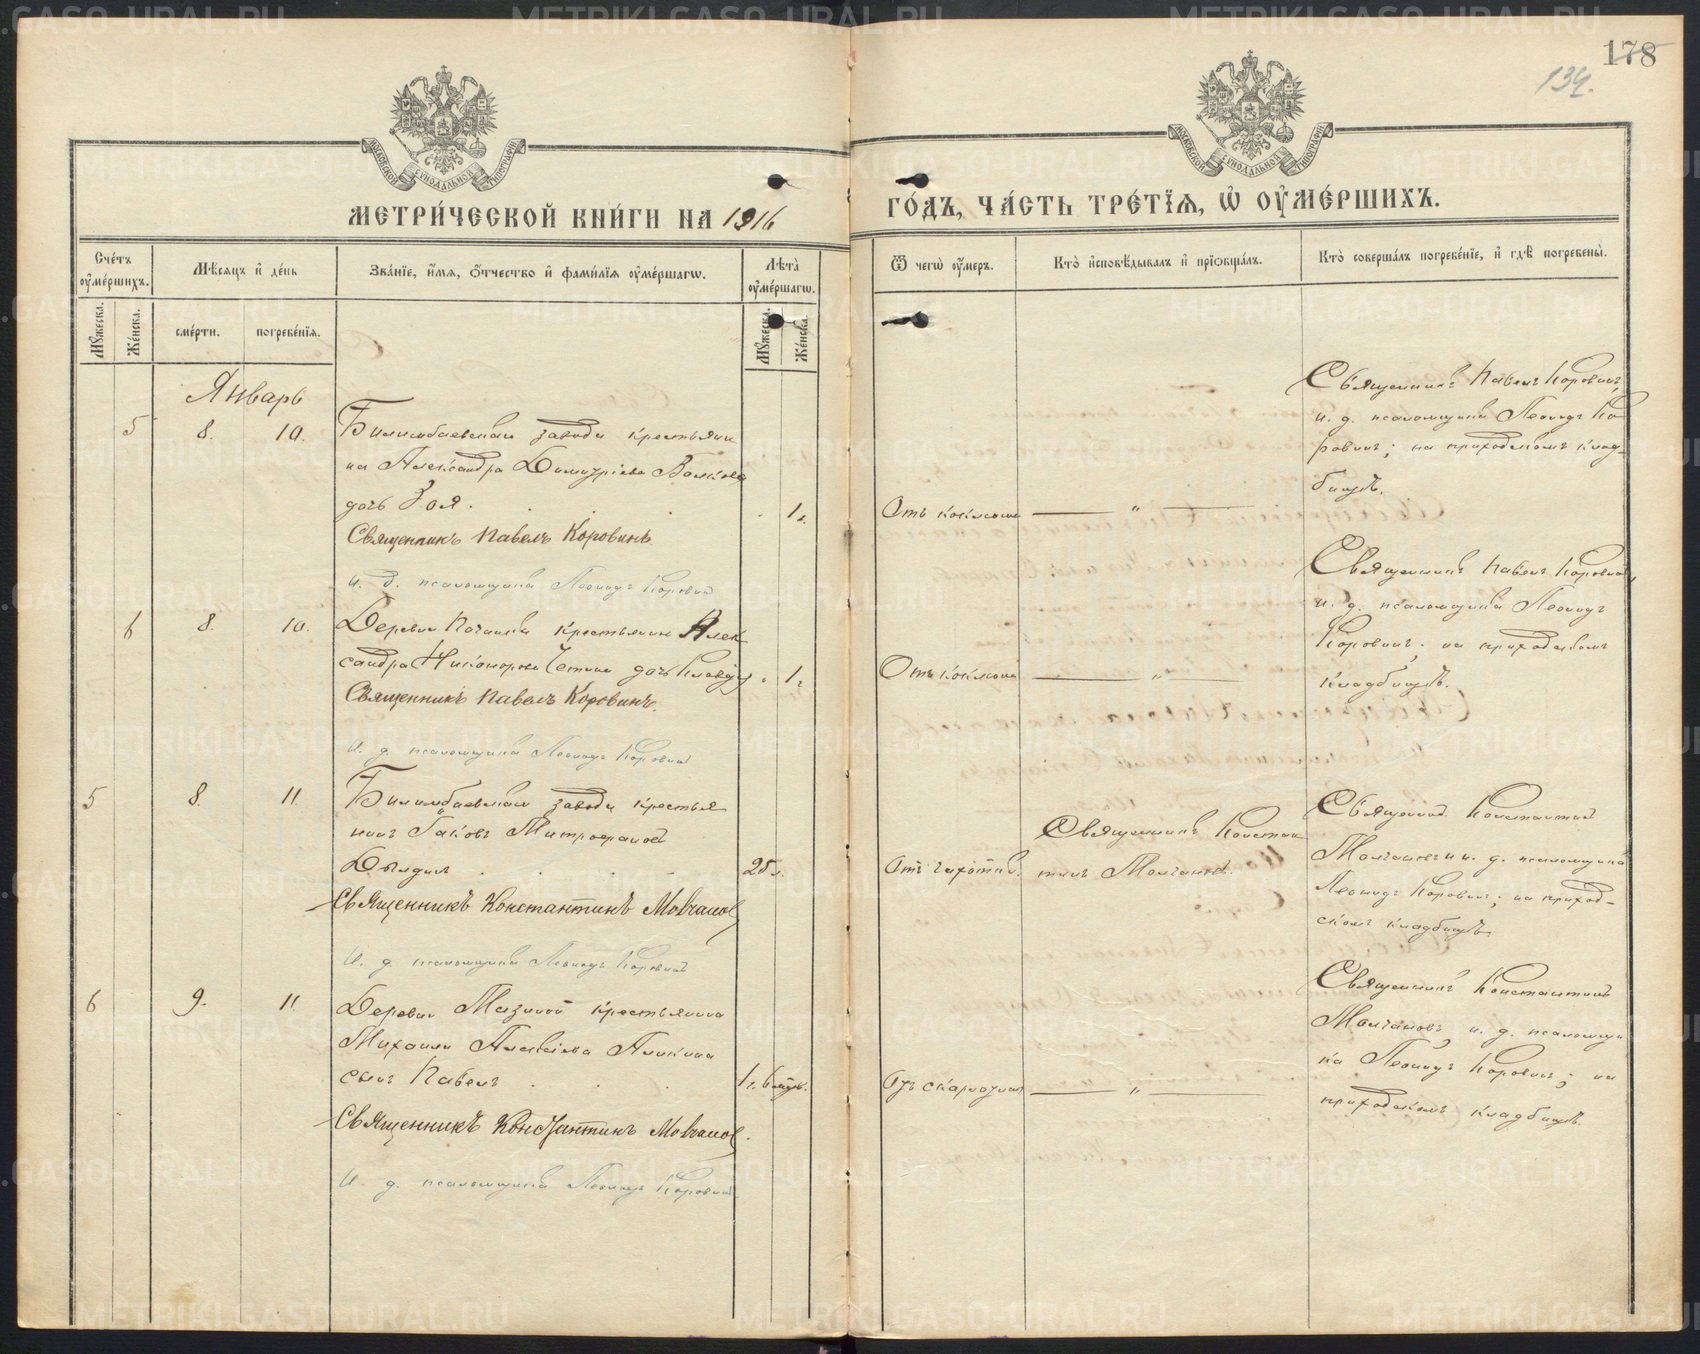 178
134.
МОСКОВСКОЙ СѴНОДАЛЬНОЙ ТИПОГРАФІИ
МОСКОВСКОЙ СѴНОДАЛЬНОЙ ТИПОГРАФІИ
МЕТРИ́ЧЕСКОЙ КНИ́ГИ НА 1916
ГО́ДЪ, ЧА́СТЬ ТРЕ́ТІЯ, Ѡ҆ ОУ҆МЕ́РШИХЪ.
Сче́тъ оу҆ме́ршихъ.
Мꙋ́жеска.
Же́нска.
Мѣ́сяцъ и҆ де́нь
сме́рти.
погребе́нїѧ.
Зва́нїе, и҆́мѧ, ѻ҆́тчество и҆ фами́лїѧ оу҆ме́ршагѡ.
Лѣ́та оу҆ме́ршагѡ.
Мꙋ́жеска.
Же́нска.
Ѿ чегѡ̀ оу҆́меръ.
Кто̀ и҆сповѣ́дывалъ и҆ прїѡбща́лъ.
Кто̀ соверша́лъ погребе́нїе, и҆ гдѣ̀ погребены̀.
Январь
5 8. 10.
Билимбаевскаго завода крестьяни
на Александра Димитріева Волкова
дочь Зоя. 1 г.
Священникъ Павелъ Коровинъ.
И. д. псаломщика Леонидъ Коровинъ
Отъ коклюша
"
Священникъ Павелъ Коровинъ,
и. д. псаломщика Леонидъ Ко
ровинъ; на приходскомъ клад-
бищѣ.
6 8. 10.
Деревни крестьянина Алек
сандра Никонорова дочь Клавдія 1 г.
Священникъ Павелъ Коровинъ.
И. д. псаломщика Леонидъ Коровинъ
Отъ коклюша
"
Священникъ Павелъ Коровинъ,
и. д. псаломщика Леонидъ
Коровинъ; на приходскомъ
кладбищѣ.
5 8. 11.
Билимбаевскаго завода крестья
нинъ Іаковъ Митрофановъ
Дылдинъ 25 л.
Священникъ Константинъ Молчановъ
И. д. псаломщика Леонидъ Коровинъ
Отъ чахотки.
Священникъ Констан
тинъ Молчановъ.
Священникъ Константинъ
Молчановъ и и. д. псаломщика
Леонидъ Коровинъ; на приход-
скомъ кладбищѣ.
6 9. 11.
Деревни Мазиной крестьянина
Михаила Алексіева Аликина
сынъ Павелъ 1 г. 6 мѣс.
Священникъ Константинъ Молчановъ.
И. д. псаломщика Леонидъ Коровинъ
Отъ скарлатины
"
Священникъ Константинъ
Молчановъ, и. д. псаломщи
ка Леонидъ Коровинъ; на
приходскомъ кладбищѣ.
METRIKI.GASO-URAL.RU